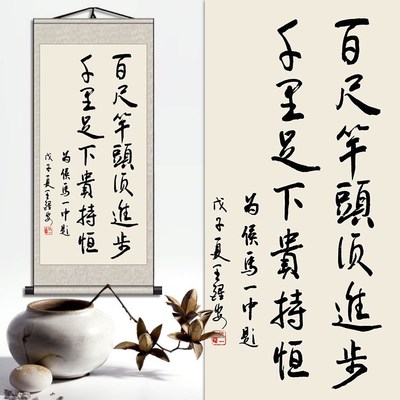 百尺竿頭须進步
千里足下貴持恒
为侯马一中题
戊子夏王
百尺竿頭须進步
千里足下貴持恒
为侯马一中题
戊子夏王